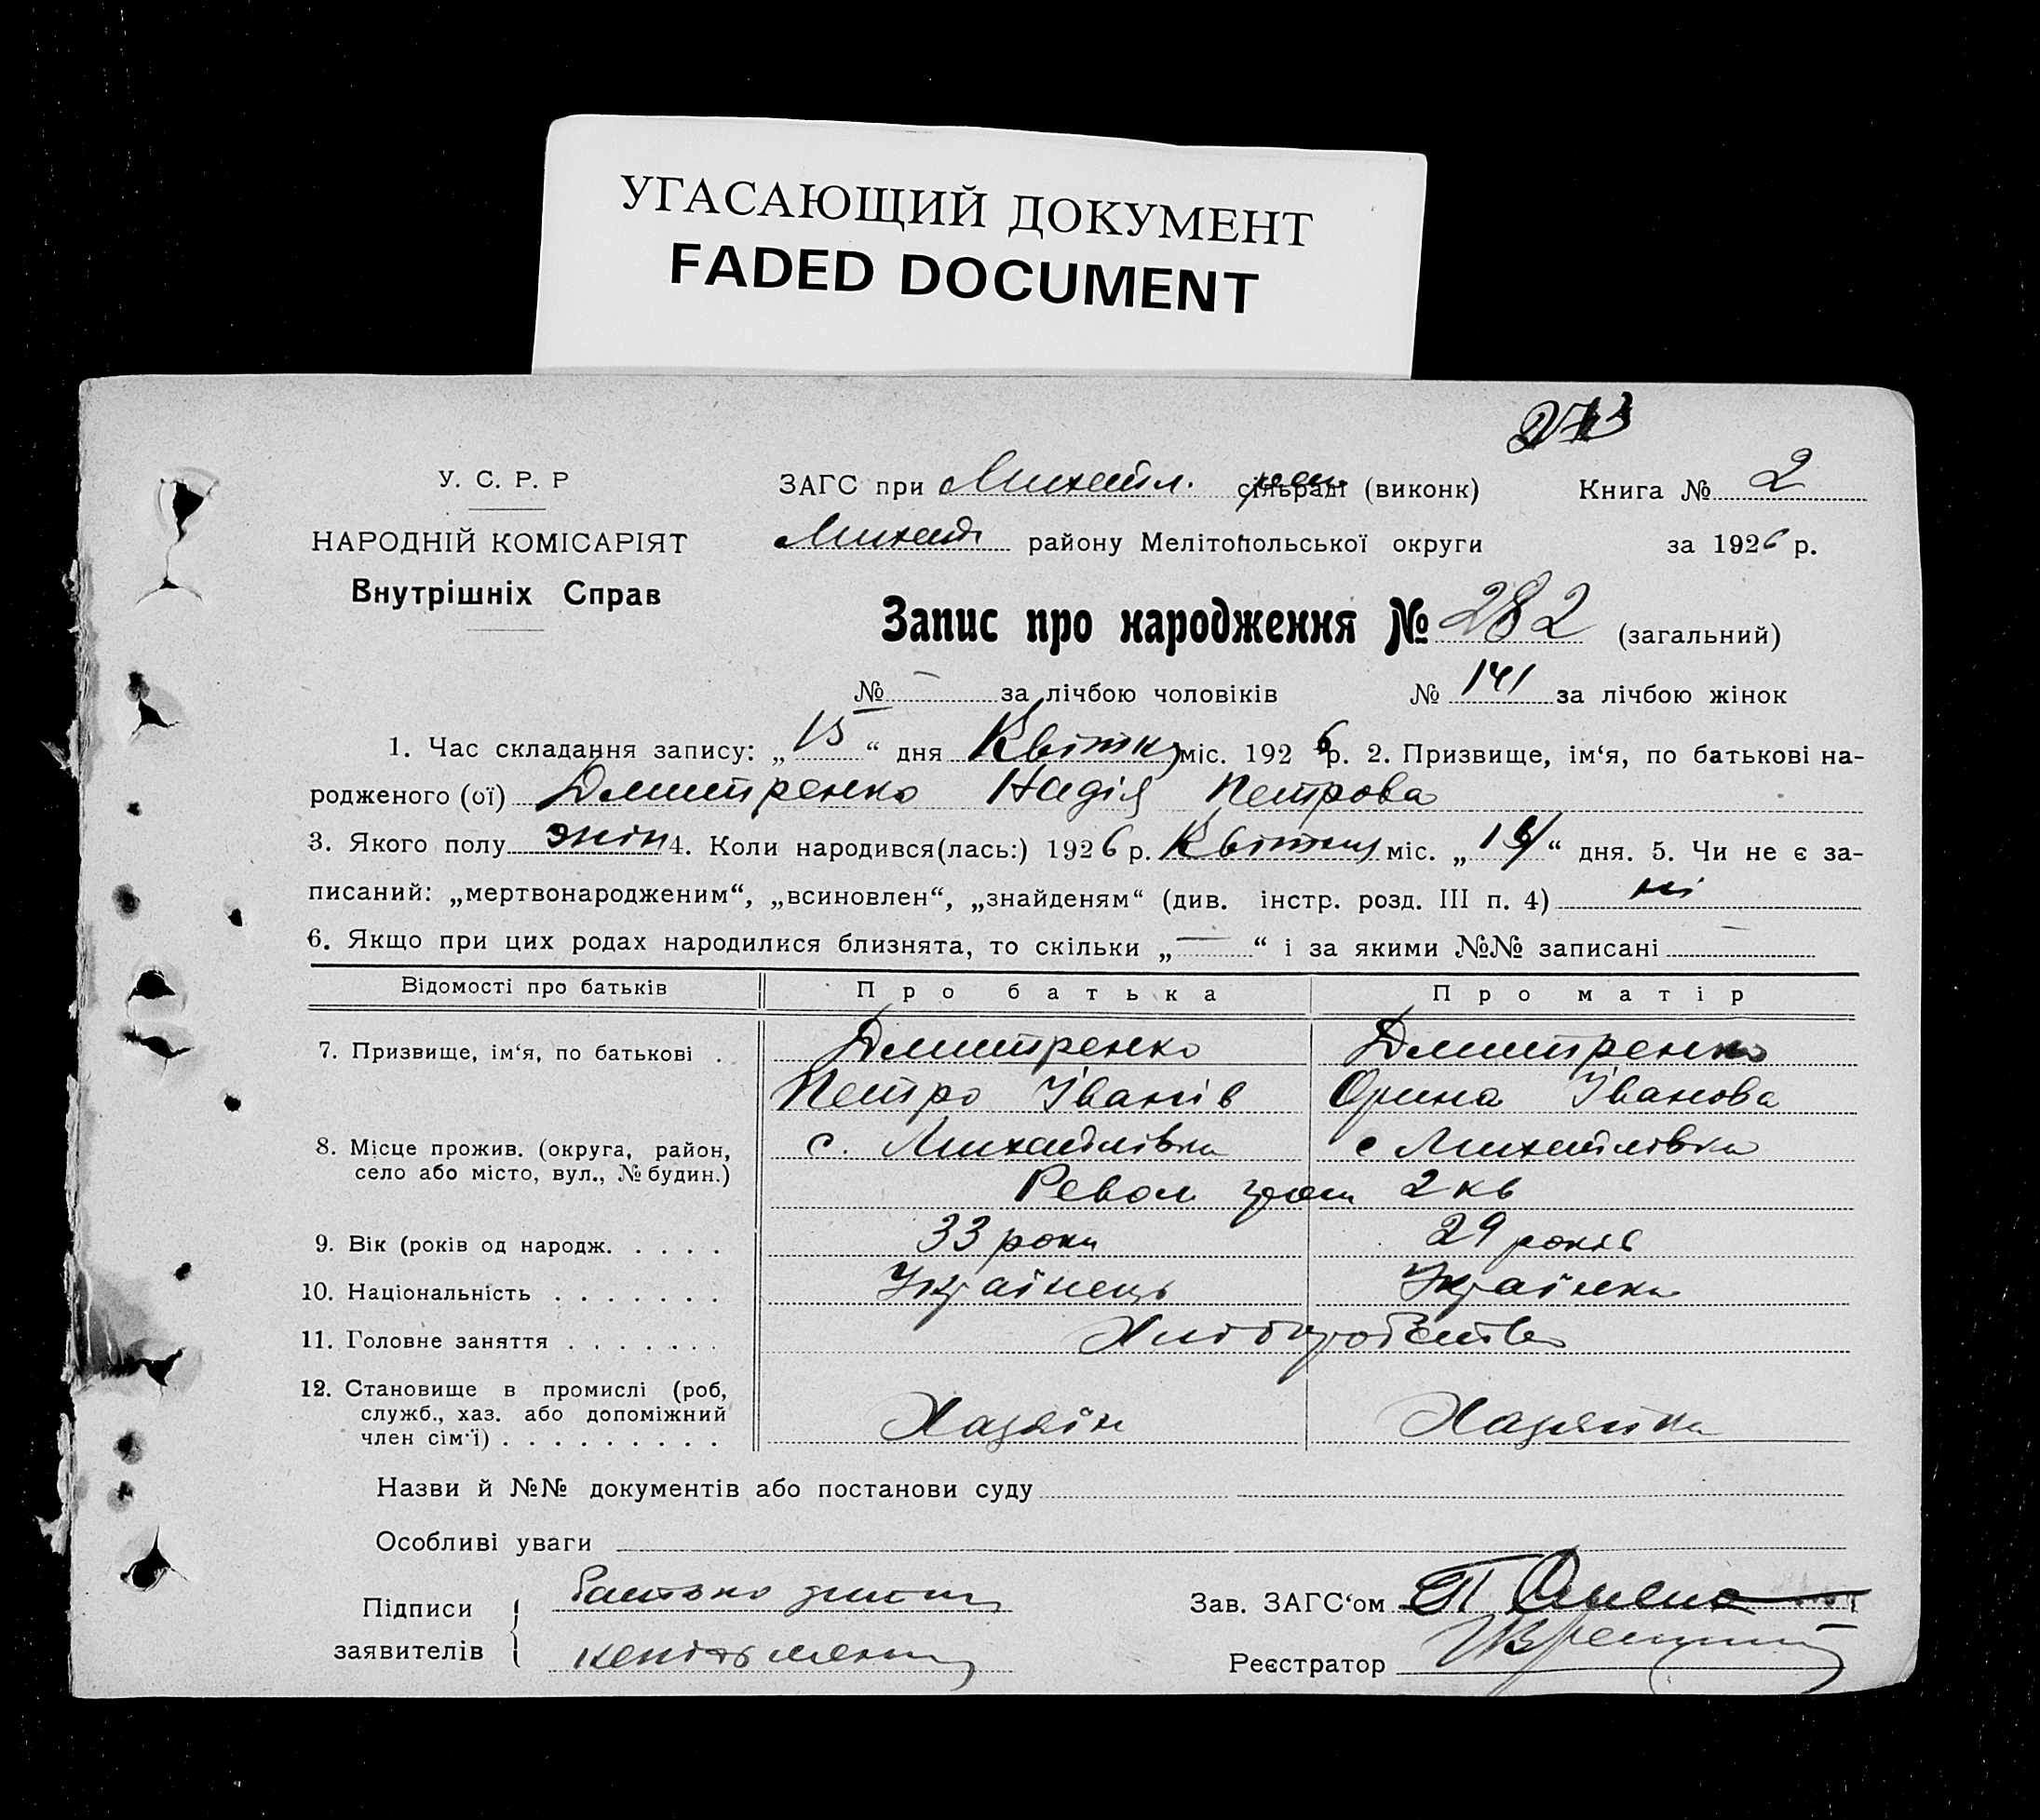 УГАСАЮЩИЙ ДОКУМЕНТ
FADED DOCUMENT
У. С. Р. Р
НАРОДНІЙ КОМІСАРІЯТ
Внутрішніх Справ
ЗАГС при Михайл. сільраді (виконк) Книга № 2
Михайл району Мелітопольської округи за 1926 р.
Запис про народження № 282 (загальний)
№ — за лічбою чоловіків № 141 за лічбою жінок
1. Час складання запису: „15“ дня Квітня міс. 1926 р. 2. Призвище, ім‘я, по батькові на-
родженого (ої) Дмитренко Надія Петрова
3. Якого полу жін 4. Коли народився(лась:) 1926 р. Квітня міс. „ “ дня. 5. Чи не є за-
писаний: „мертвонародженим“, „всиновлен“, „знайденям“ (див. інстр. розд. III п. 4) ні
6. Якщо при цих родах народилися близнята, то скільки „—“ і за якими №№ записані —
Відомості про батьків Про батька Про матір
7. Призвище, ім‘я, по батькові . Дмитренко Дмитренко
Петро Іванів Орина Іванова
8. Місце прожив. (округа, район, с. Михайлівка с Михайлівка
село або місто, вул., № будин.)
Револ 2 кв
9. Вік (років од народж. . . . . 33 роки 29 років
10. Національність . . . . . . . Українець Українка
11. Головне заняття . . . . . . . Хліборобство
12. Становище в промислі (роб,
служб., хаз. або допоміжний
член сім‘ї) . . . . . . . . . Хазяїн Хазяйка
Назви й №№ документів або постанови суду
Особливі уваги
Підписи
заявителів
Батько
Зав. ЗАГС‘ом
Реєстратор